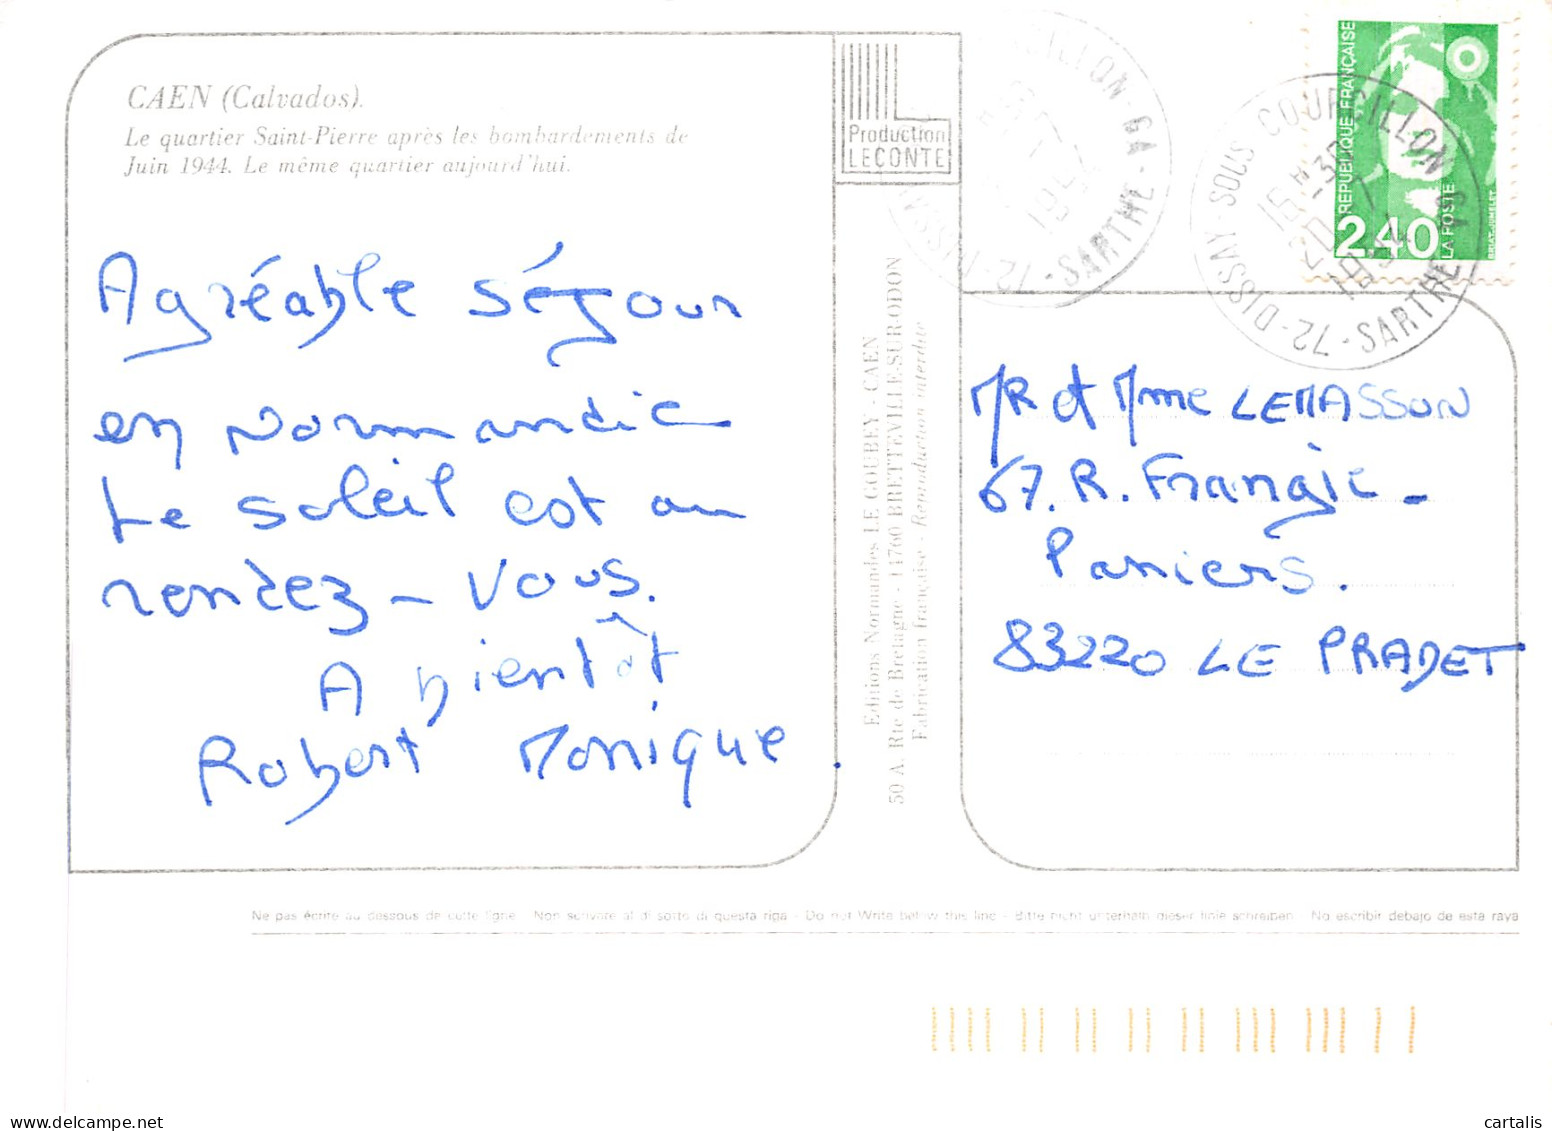 CAEN (Calvados).
Le quartier Saint-Pierre après les bombardements de
Juin 1944. Le même quartier aujourd'hui.
Agréable séjour
en Normandie
Le soleil est au
rendez-vous.
A bientôt
Robert Monique.
Production
LECONTE
Editions Normandes LE GOUBEY - CAEN
50 A, Rte de Bretagne - 14760 BRETTEVILLE-SUR-ODON
Fabrication française - Reproduction interdite
72-DISSAY-SOUS-COURCILLON-GA
SARTHE
16H30
20-7
1994
REPUBLIQUE FRANÇAISE
2,40
LA POSTE
BRIAT-JUMELET
MR et Mme LEMASSON
67. R. Frangie -
Paniers.
83220 LE PRADET
Ne pas écrire au dessous de cette ligne - Non scrivere al di sotto di questa riga - Do not Write below this line - Bitte nicht unterhalb dieser linie schreiben - No escribir debajo de esta raya
cartalis